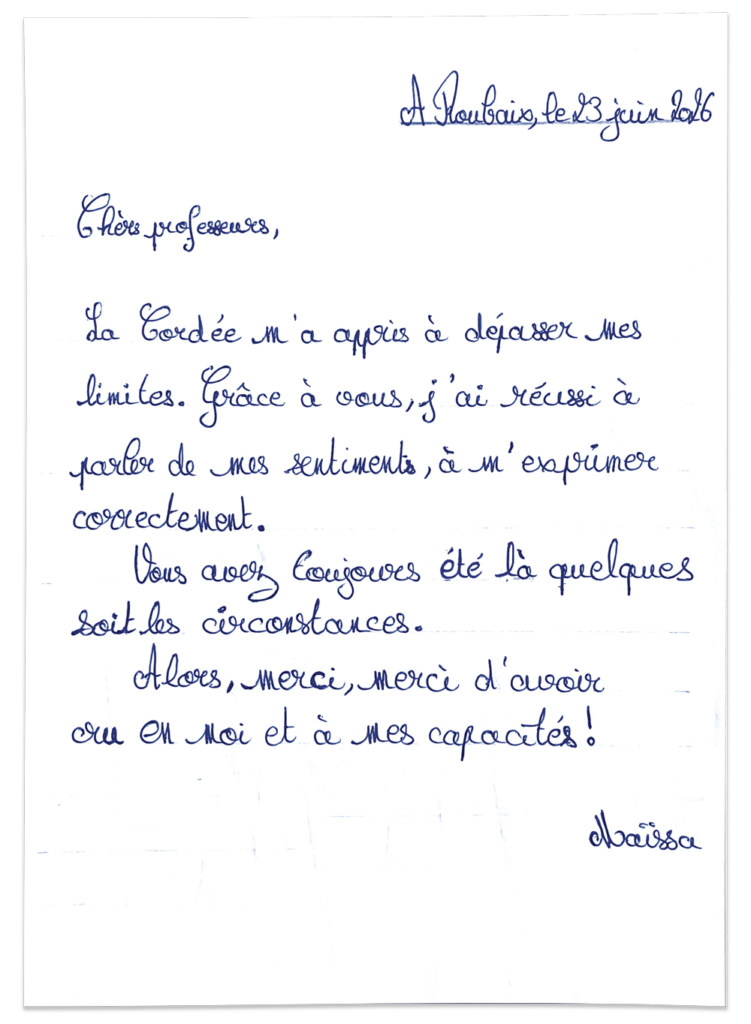 A Roubaix, le 23 juin 2026
Chèrs professeurs,
La Cordée m'a appris à dépasser mes
limites. Grâce à vous, j'ai réussi à
parler de mes sentiments, à m'exprimer
correctement.
Vous avez toujours été là quelques
soit les circonstances.
Alors, merci, merci d'avoir
cru en moi et à mes capacités !
Maïssa